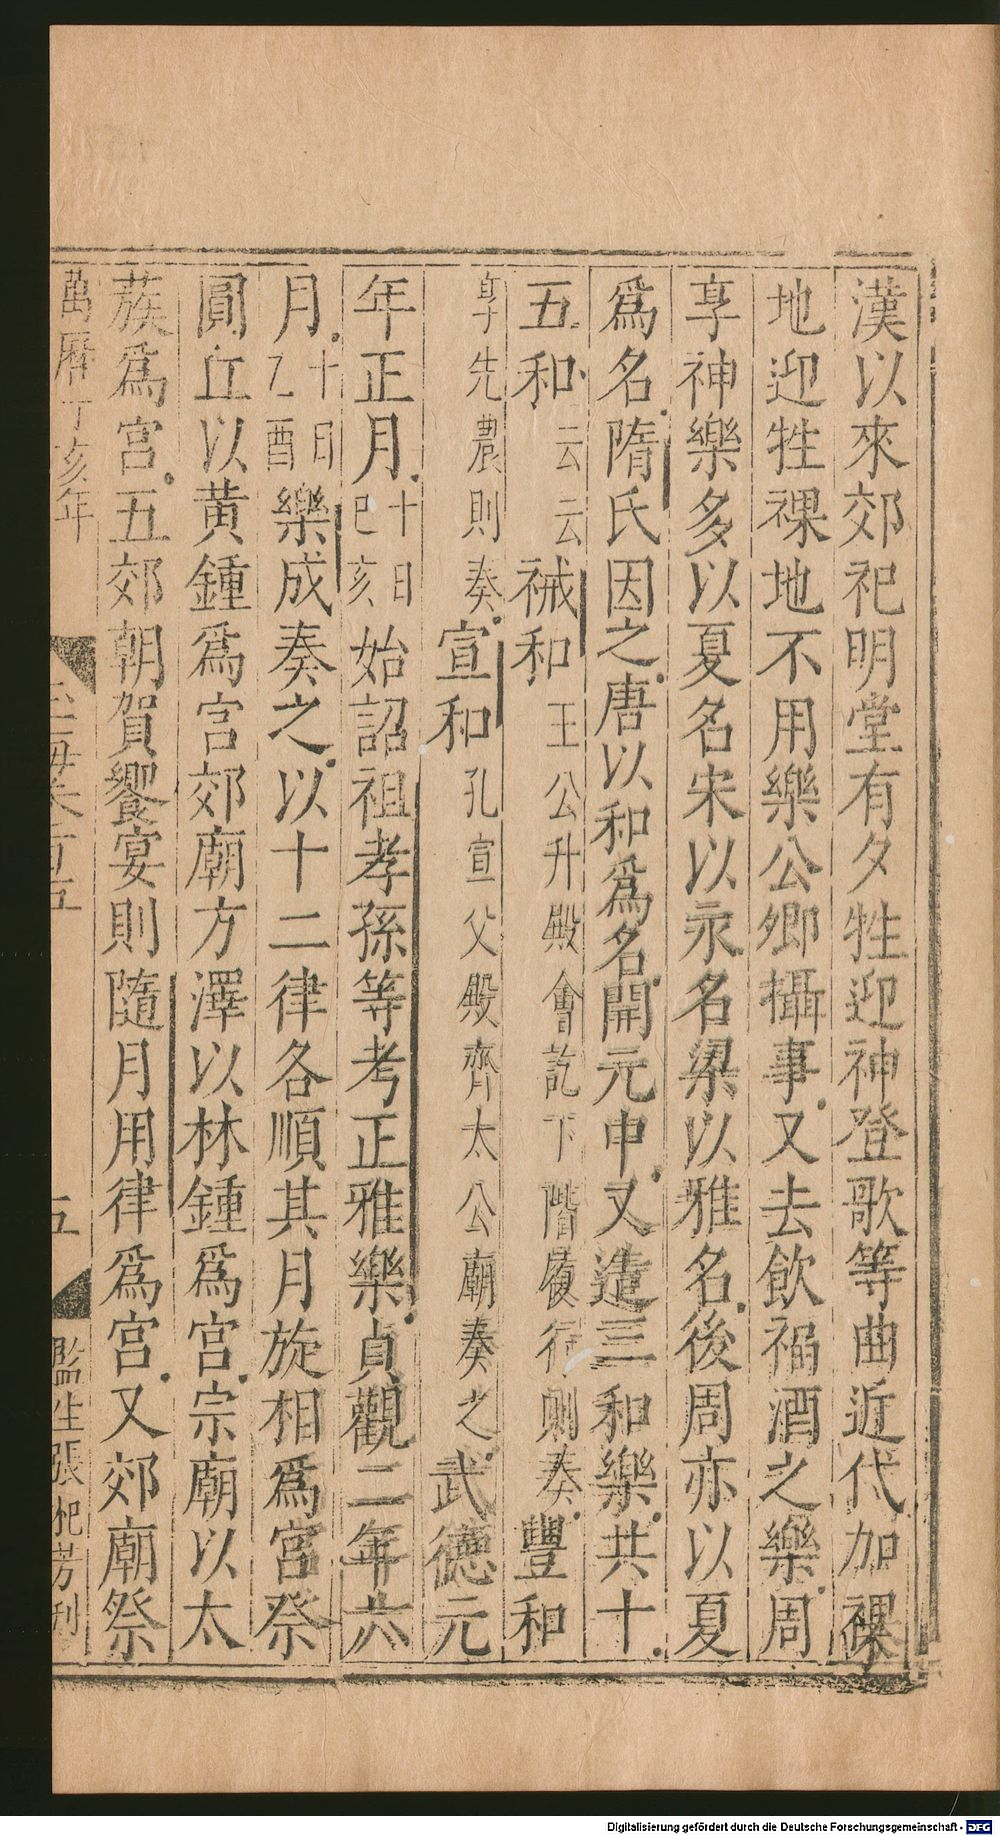 漢以來郊祀明堂有夕牲迎神登歌等曲近代加祼
地迎牲祼地不用樂公卿攝事又去飲福酒之樂周
享神樂多以夏名宋以永名梁以雅名後周亦以夏
爲名隋氏因之唐以和爲名開元中又造三和樂共十
五和云云祴和王公升殿會訖下階履行則奏豐和
享先農則奏宣和孔宣父殿齊太公廟奏之武德元
年正月十日巳亥始詔祖孝孫等考正雅樂貞觀二年六
月十日乙酉樂成奏之以十二律各順其月旋相爲宮祭
圓丘以黃鍾爲宮郊廟方澤以林鍾爲宮宗廟以太
蔟爲宮五郊朝賀饗宴則隨月用律爲宮又郊廟祭
萬曆丁亥年
五
監生張杞芳刊
Digitalisierung gefördert durch die Deutsche Forschungsgemeinschaft - DFG